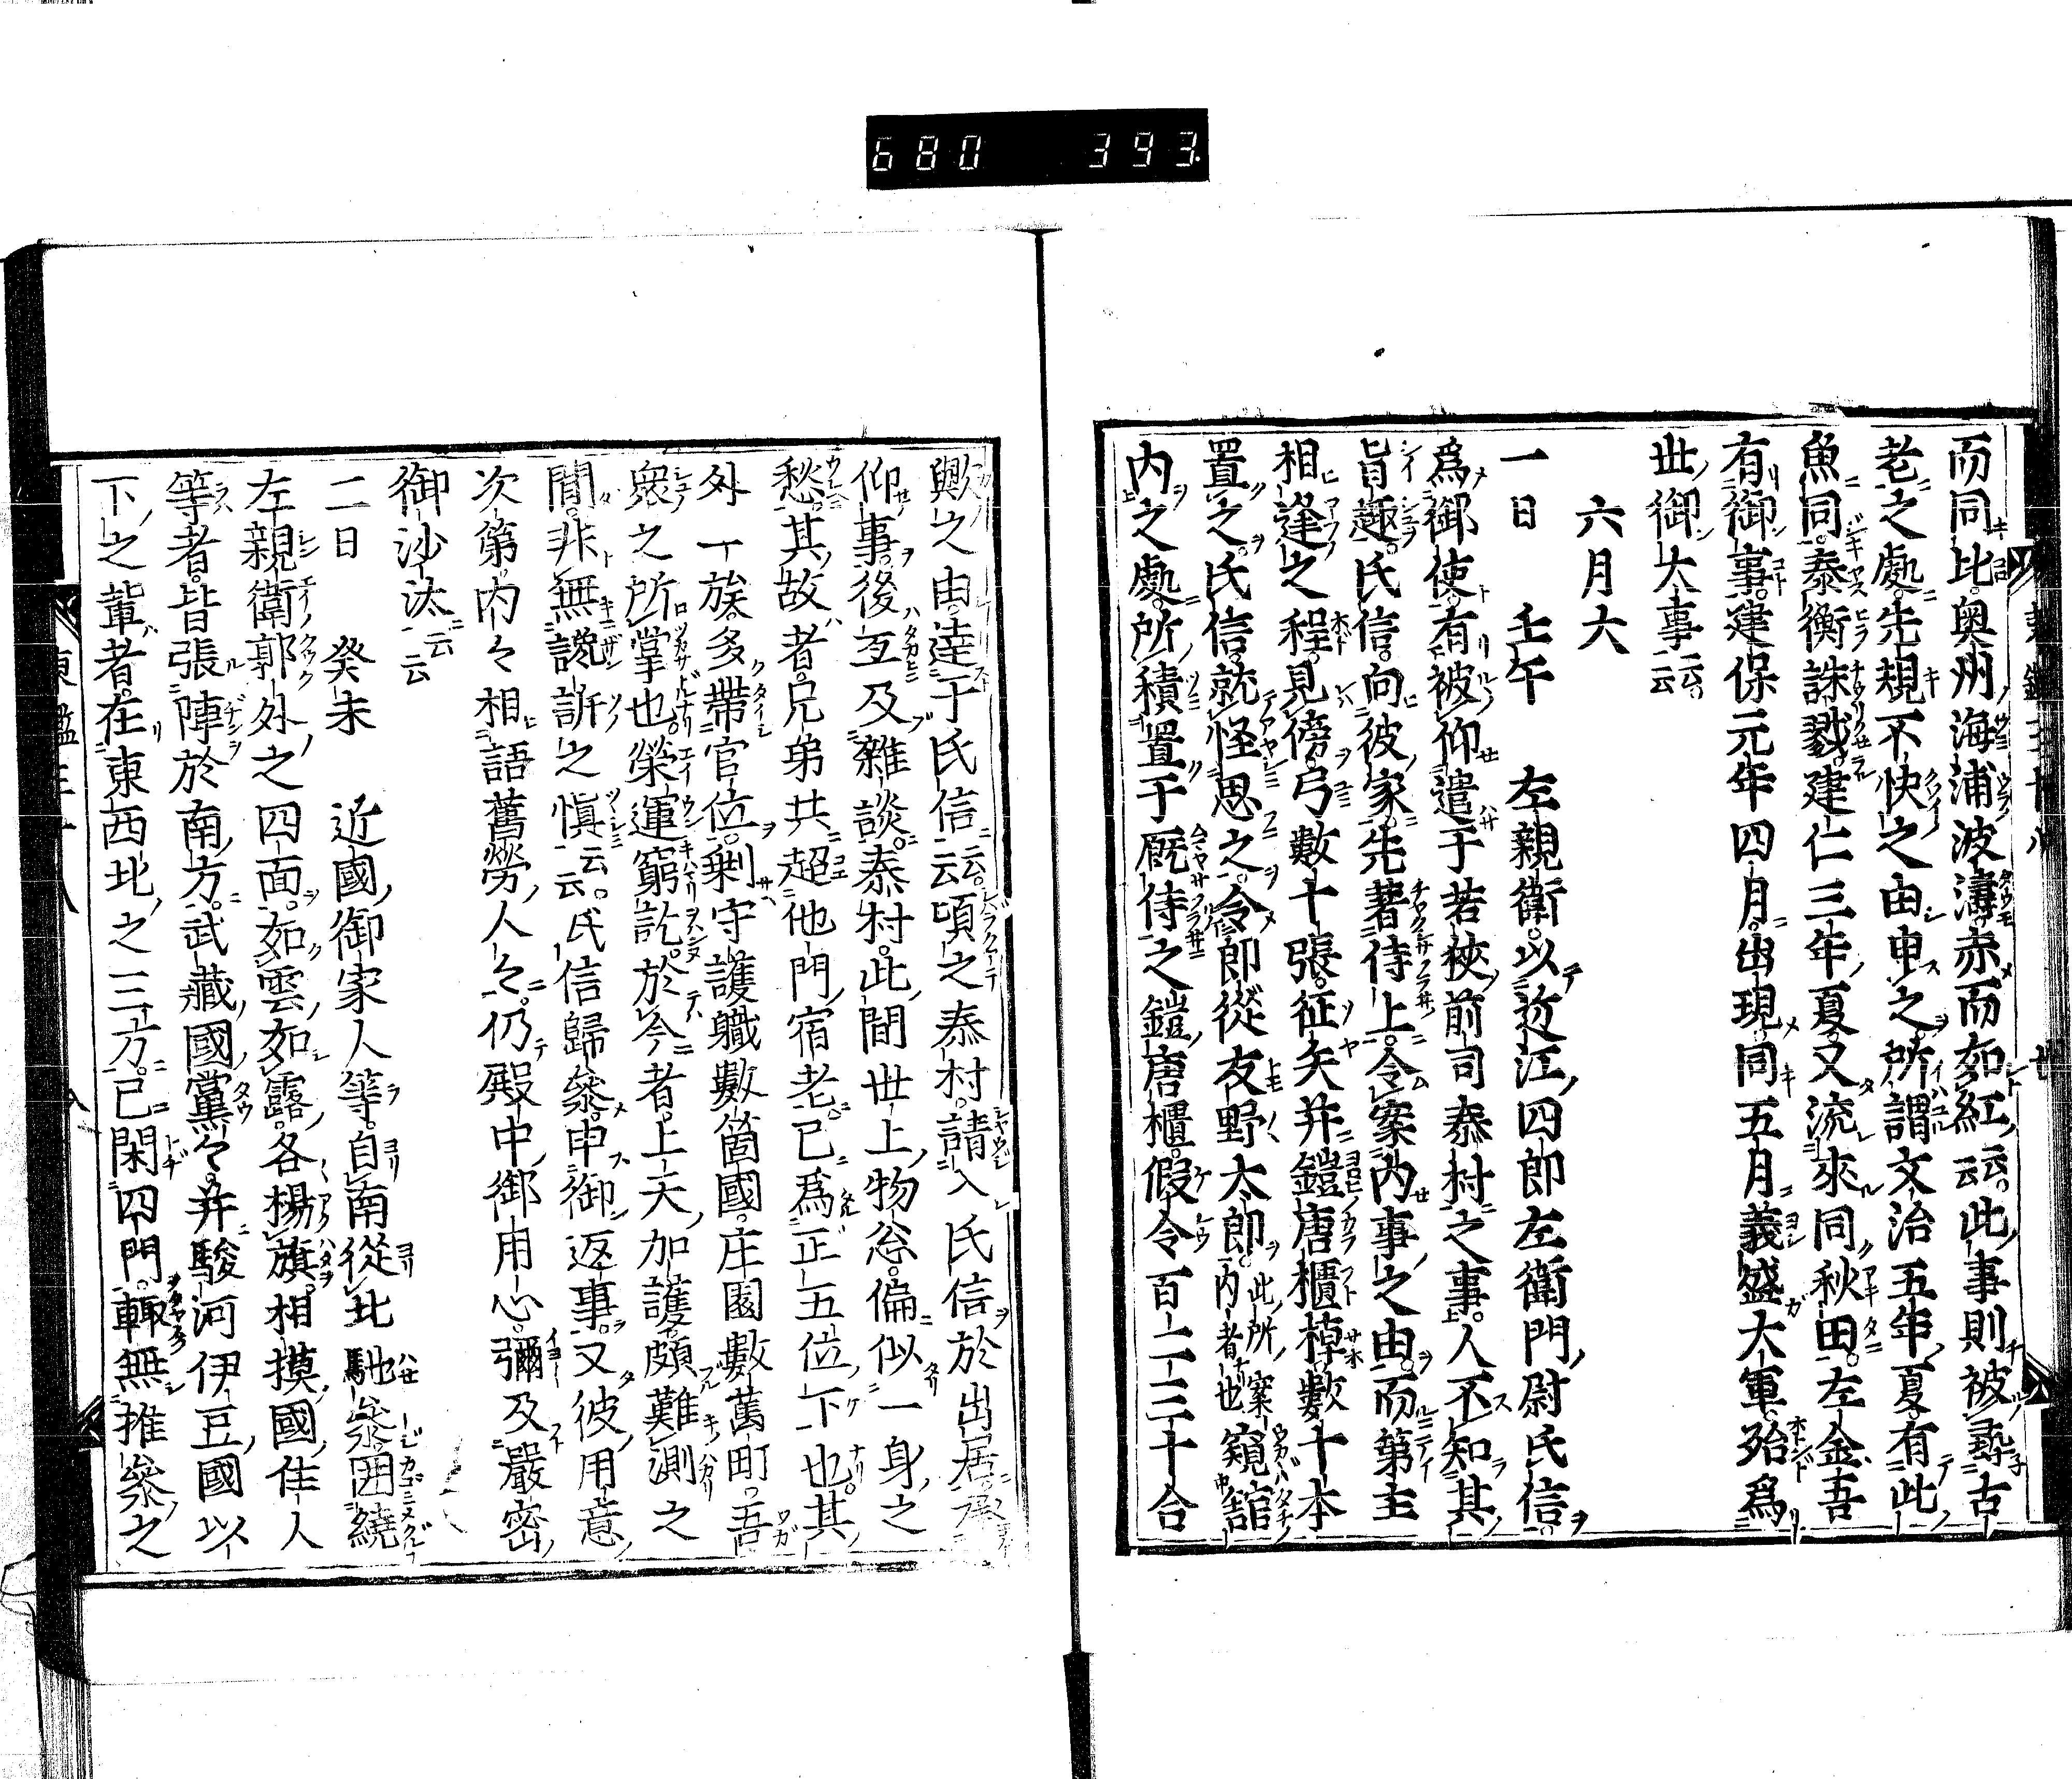 680 393
而同比奥州海浦波濤赤而如紅云云此事則被尋古
老之處先規不快之由申之所謂文治五年夏有此
魚同泰衡誅戮建仁三年夏又流來同秋田左金吾
有御事建保元年四月出現同五月義盛大軍殆爲
世御大事云云
六月大
一日 壬午 左親衛以近江四郎左衛門尉氏信
爲御使有被仰遣于若狹前司泰村之事人不知其
旨趣氏信向彼家先著侍上令案内事之由而第主
相逢之程見傍弓數十張征矢并鎧唐櫃棹數十本
置之氏信就怪思之令郎從友野太郎此所案内者也窺舘
内之處所積置于厩侍之鎧唐櫃假令百二三十合
歟之由達于氏信云云頃之泰村請入氏信於出居承
仰事後互及雜談泰村此間世上物忩偏似一身之
愁其故者兄弟共超他門宿老已爲正五位下也其
外一族多帶官位剩守護職數箇國庄園數萬町吾
衆之所掌也榮運窮訖於今者上天加護頗難測之
間非無讒訴之愼云云氏信歸參申御返事又彼用意
次第内々相語舊勞人々仍殿中御用心彌及嚴密
御沙汰云云
二日 癸未 近國御家人等自南從北馳參囲繞
左親衛郭外之四面如雲如露各揚旗相摸國住人
等者皆張陣於南方武藏國黨々并駿河伊豆國以
下之輩者在東西北之三方已閑四門輙無推參之